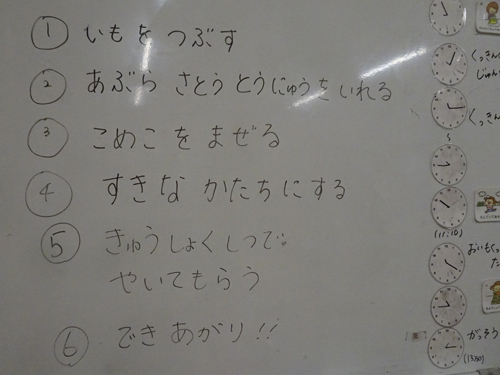 ① いもを つぶす
② あぶら さとう とうにゅうをいれる
③ こめこ を まぜる
④ すきな かたちにする
⑤ きゅうしょくしつで
やいてもらう
⑥ できあがり!!
くっきん
じゅん
くっきん
(11:10)
おいも
た
がっそう
(13:50)